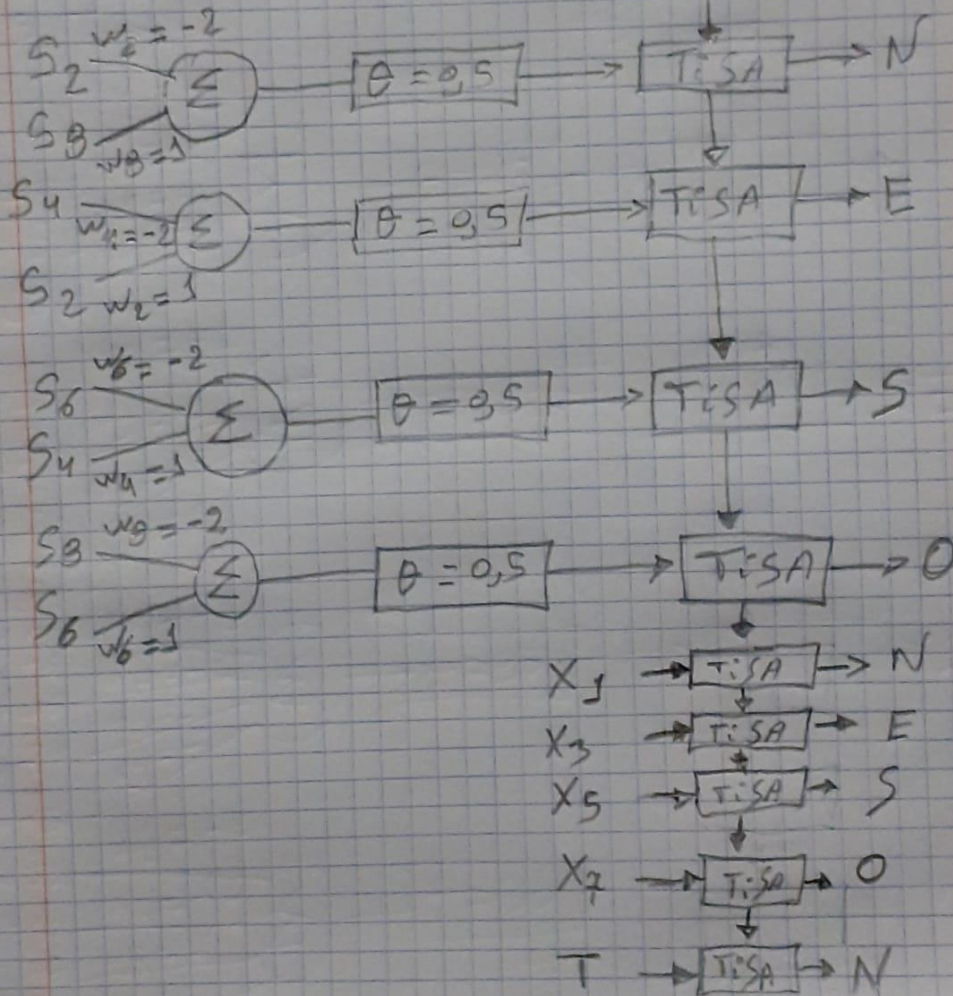 w₂ = -2
S₂ Σ θ = 0,5 TiSA N
S₈ w₈ = 1
S₄ w₄ = -2 Σ θ = 0,5 TiSA E
S₂ w₂ = 1
w₆ = -2
S₆ Σ θ = 0,5 TiSA S
S₄ w₄ = 1
w₈ = -2
S₈ Σ θ = 0,5 TiSA O
S₆ w₆ = 1
X₁ TiSA N
X₃ TiSA E
X₅ TiSA S
X₇ TiSA O
T TiSA N